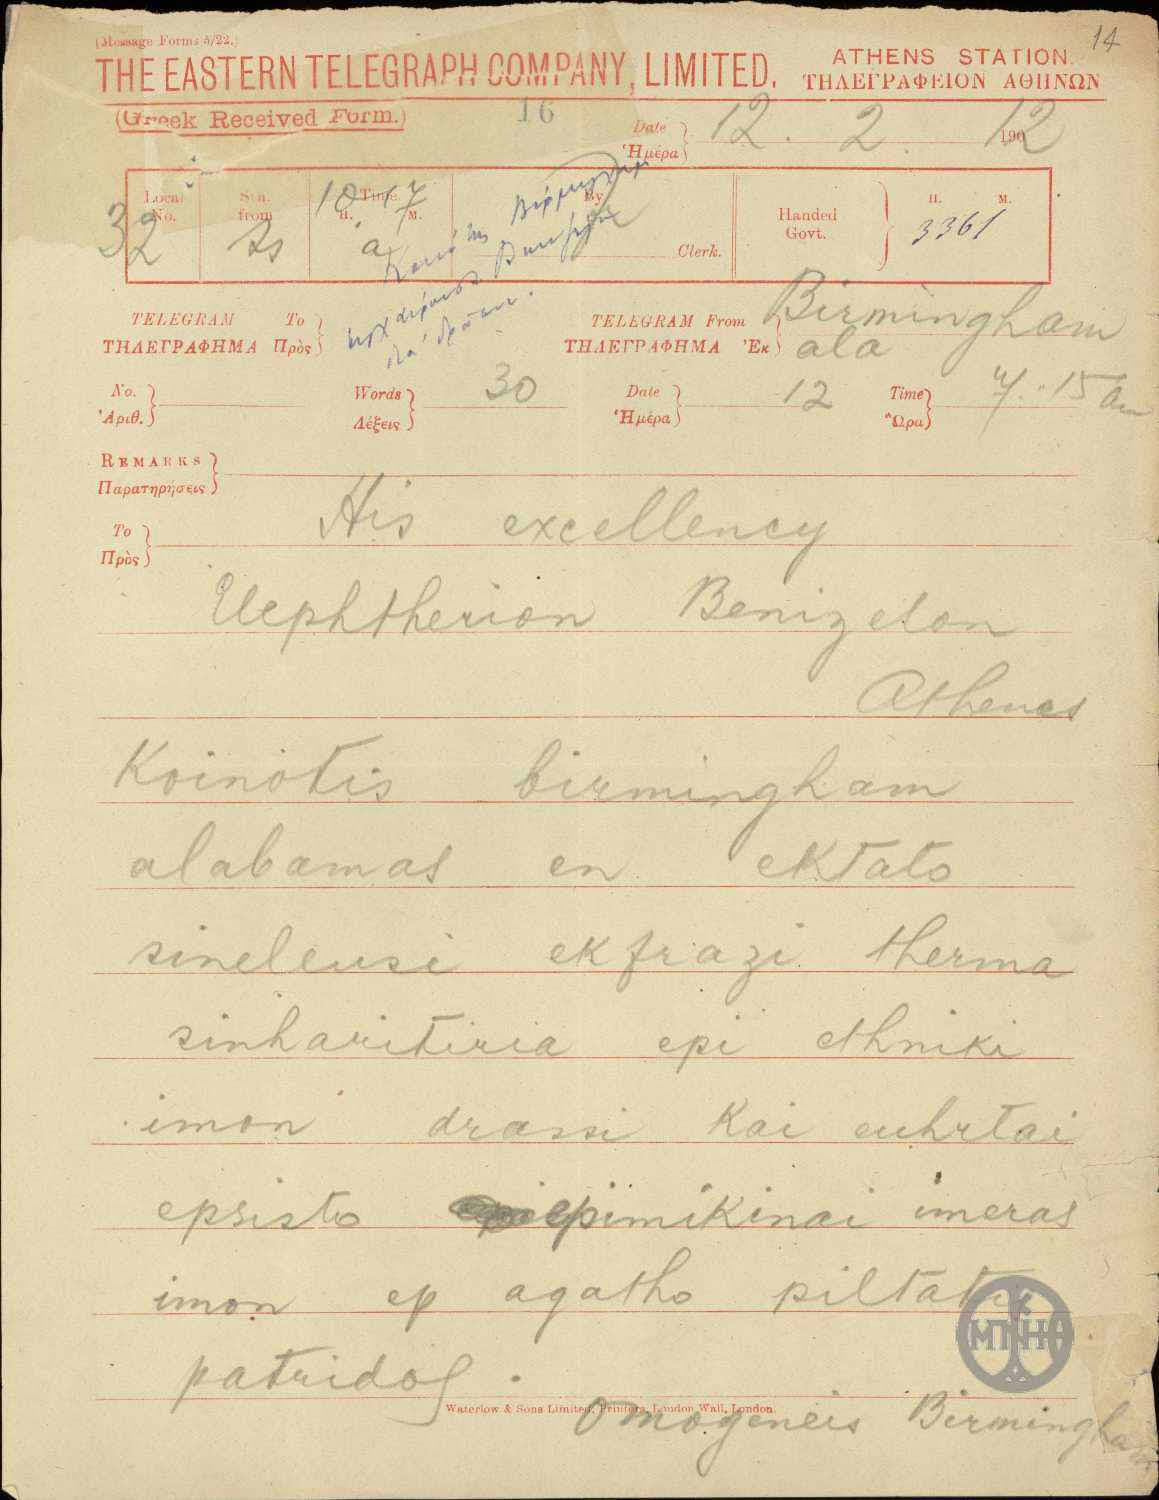 (Message Forms 5/22.)
14
THE EASTERN TELEGRAPH COMPANY, LIMITED.
ATHENS STATION.
ΤΗΛΕΓΡΑΦΕΙΟΝ ΑΘΗΝΩΝ
(Greek Received Form.)
16
Date
Ἡμέρα
12 . 2 . 12
190
Local No.
Stn. from
Time
H. M.
By
Clerk.
Handed Govt.
H. M.
32
10 17
α
3361
TELEGRAM To
ΤΗΛΕΓΡΑΦΗΜΑ Πρὸς
TELEGRAM From
ΤΗΛΕΓΡΑΦΗΜΑ Ἐκ
Birmingham
ala
No.
Ἀριθ.
Words
Λέξεις
30
Date
Ἡμέρα
12
Time
Ὥρα
15
REMARKS
Παρατηρήσεις
To
Πρὸς
His excellency
Uephtherion Benizelon
Athenes
Koinotis birmingham
alabamas en ektato
sineleusi ekfrazi therma
sinharitiria epi ethniki
imon drassi kai euhrtai
epsisto epimikinai imeras
imon ep agatho piltatis
patridos .
Waterlow & Sons Limited, Printers, London Wall, London.
Omogeneis Birmingham
ΜΠΝΗ